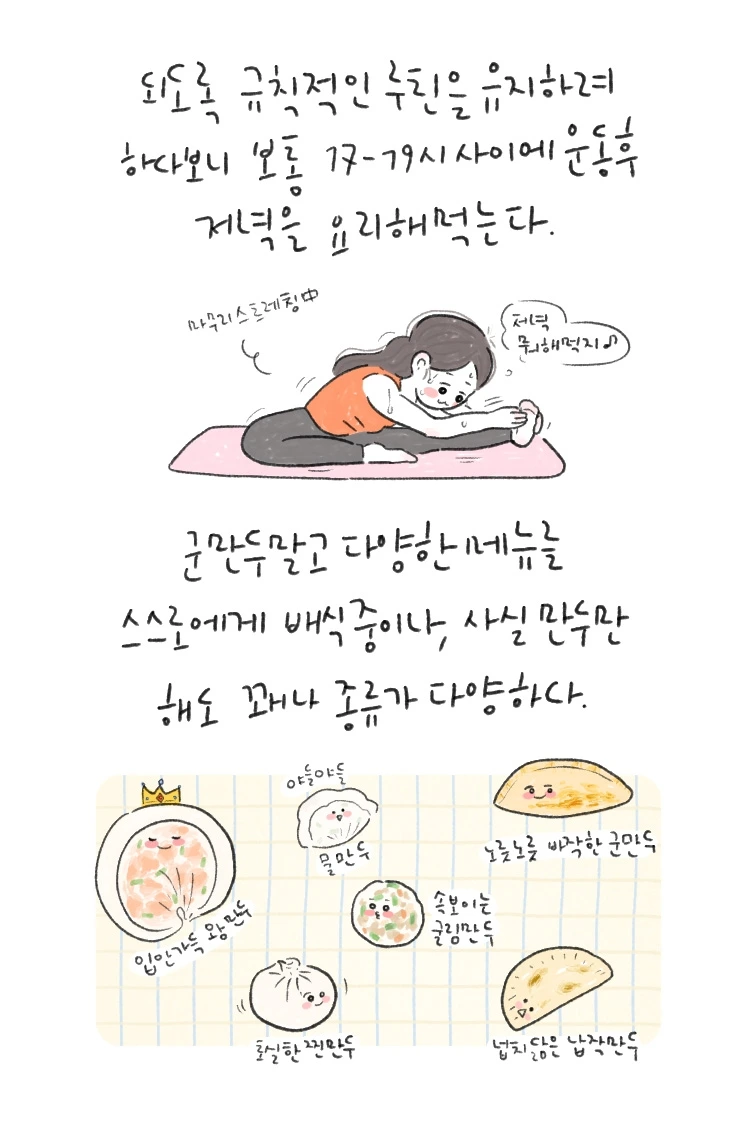 되도록 규칙적인 루틴을 유지하려
하다보니 보통 17-19시 사이에 운동후
저녁을 요리해먹는다.
마무리스트레칭中
저녁
뭐해먹지♪
군만두말고 다양한 메뉴를
스스로에게 배식중이나, 사실 만두만
해도 꽤나 종류가 다양하다.
야들야들
물만두
노릇노릇 바작한 군만두
입안가득 왕만두
속보이는
굴림만두
포실한 찐만두
넙치닮은 납작만두